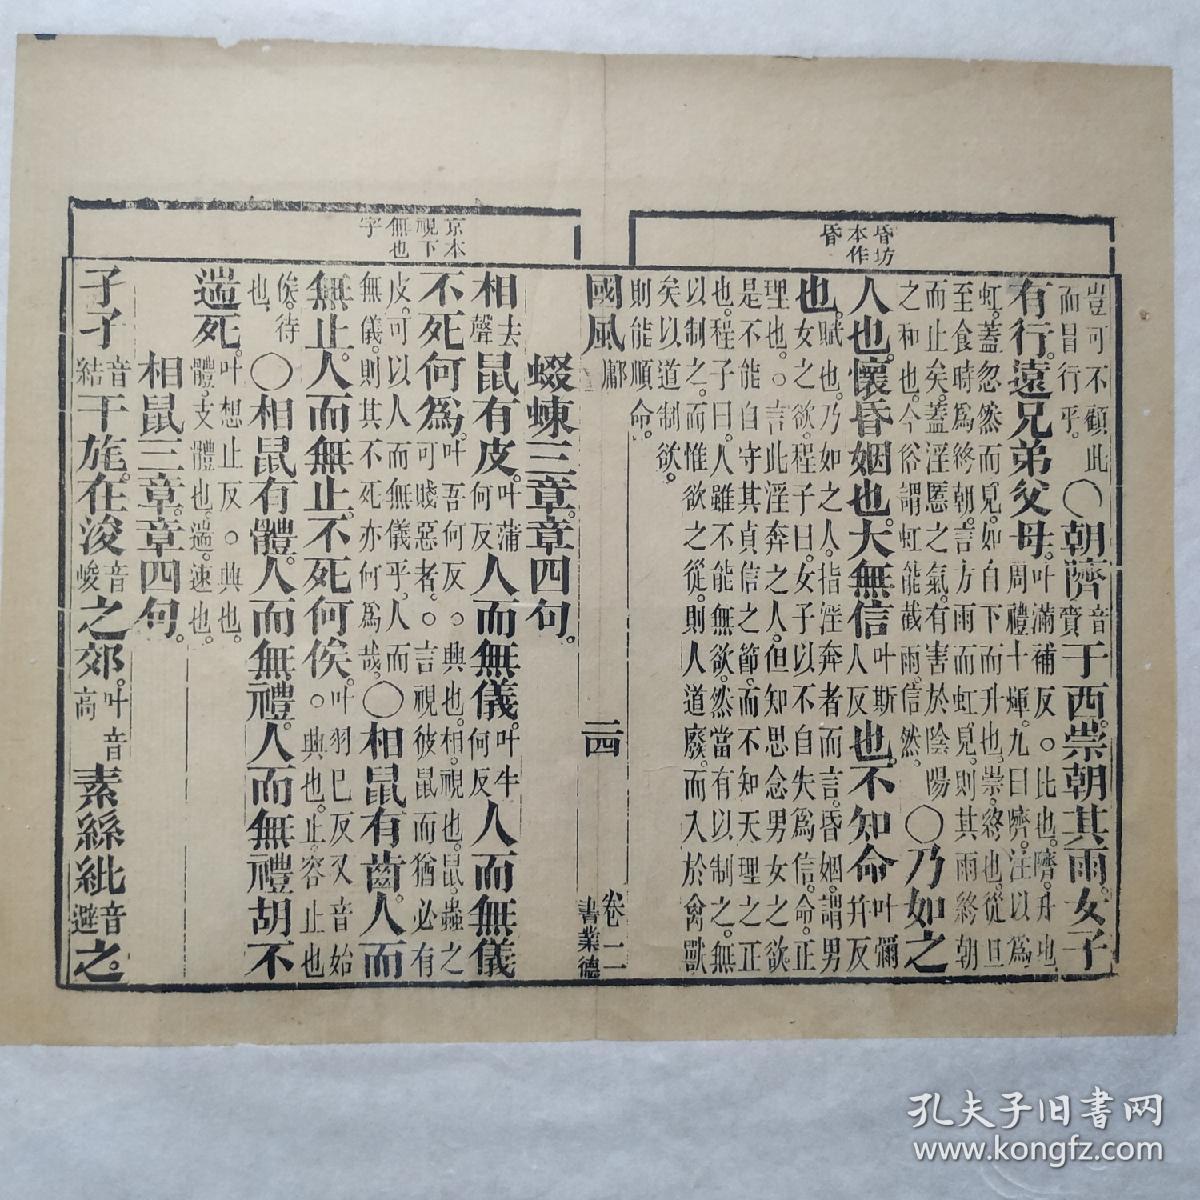 昏坊
本作
昬
豈可不顧此
而冒行乎。
○朝隮音賷于西。崇朝其雨。女子
有行。遠兄弟父母。叶滿補反。○比也。隮。升也
周禮十煇。九曰隮。注以爲
虹。蓋忽然而見。如自下而升也。崇。終也。從旦
至食時爲終朝。言方雨而虹見。則其雨終朝
而止矣。蓋淫慝之氣。有害於陰陽
之和也。今俗謂虹能截雨。信然。
○乃如之
人也。懷昏姻也。大無信叶斯人反也。不知命叶彌幷反
也。賦也。乃如之人。指淫奔者而言。昏姻。謂男
女之欲。程子曰。女子以不自失爲信。命。正
理也。○言此淫奔之人。但知思念男女之欲
是不能自守其貞信之節。而不知天理之正
也。程子曰。人雖不能無欲。然當有以制之。無
以制之。而惟欲之從。則人道廢。而入於禽獸
矣。以道制欲。
則能順命。
國風 鄘 二四 卷二 書業德
京本
視下
無也
字
蝃蝀三章章四句。
相去聲鼠有皮。叶蒲何反人而無儀。叶牛何反人而無儀
不死何爲。叶吾何反。○興也。相。視也。鼠。蟲之
可賤惡者。○言視彼鼠而猶必有
皮。可以人而無儀乎。人而
無儀。則其不死亦何爲哉。
○相鼠有齒。人而
無止。人而無止。不死何俟。叶羽已反又音始
○興也。止。容止也
俟。待
也
○相鼠有體。人而無禮。人而無禮。胡不
遄死。叶想止反。○興也。
體。支體也。遄。速也
相鼠三章。章四句。
孑孑音結干旄。在浚音峻之郊。叶音高素絲紕音避之。
孔夫子旧书网
www.kongfz.com